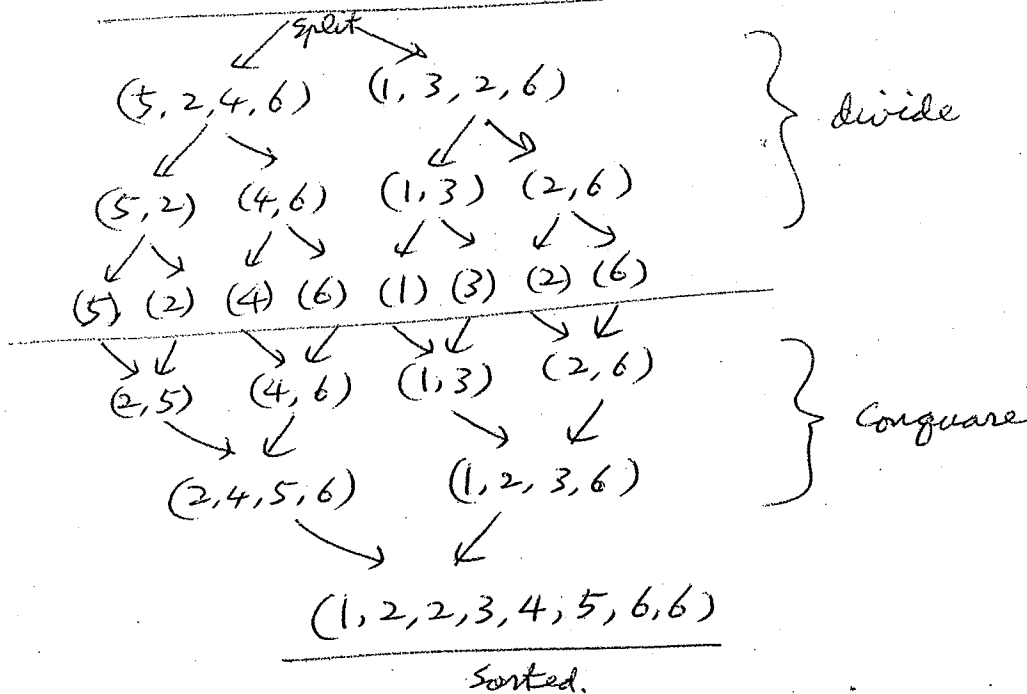 split
(5, 2, 4, 6) (1, 3, 2, 6)
divide
(5, 2) (4, 6) (1, 3) (2, 6)
(5) (2) (4) (6) (1) (3) (2) (6)
(2, 5) (4, 6) (1, 3) (2, 6)
Conquare
(2, 4, 5, 6) (1, 2, 3, 6)
(1, 2, 2, 3, 4, 5, 6, 6)
Sorted.